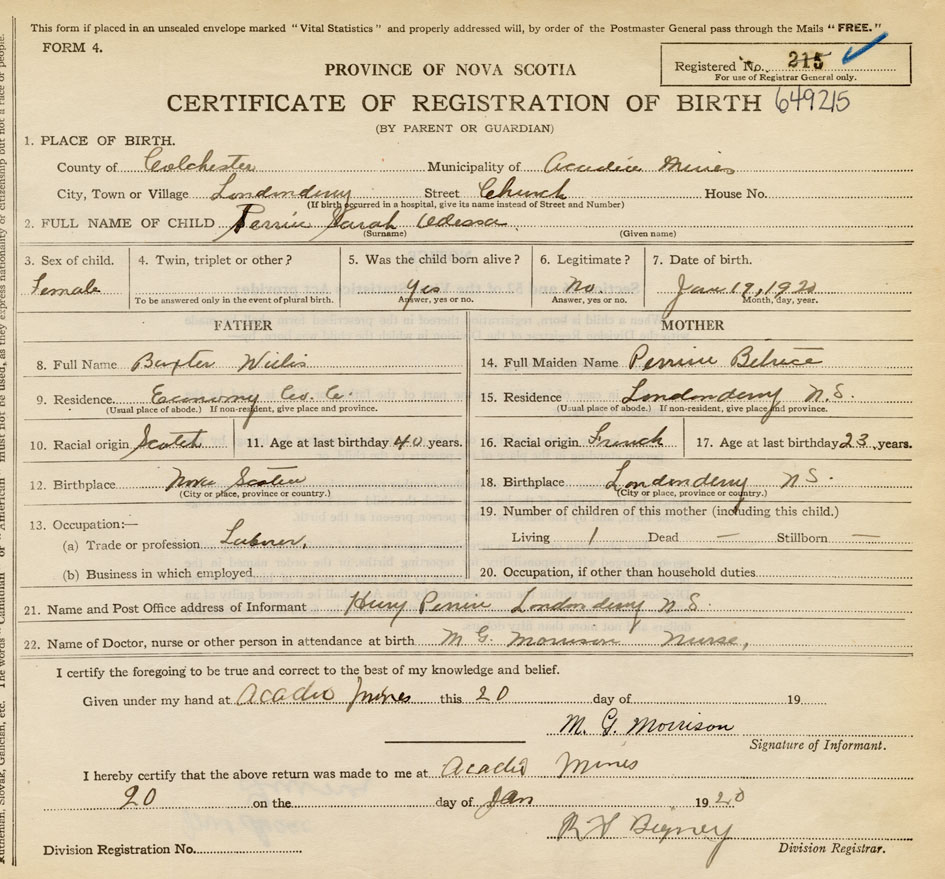 This form if placed in an unsealed envelope marked "Vital Statistics" and properly addressed will, by order of the Postmaster General pass through the Mails "FREE."
FORM 4.
Registered No. 215
For use of Registrar General only.
PROVINCE OF NOVA SCOTIA
CERTIFICATE OF REGISTRATION OF BIRTH 649215
(BY PARENT OR GUARDIAN)
1. PLACE OF BIRTH.
County of Colchester Municipality of Acadia Mines
City, Town or Village Londonderry Street Church House No.
(If birth occurred in a hospital, give its name instead of Street and Number)
2. FULL NAME OF CHILD Perrin Sarah Odessa
(Surname) (Given name)
3. Sex of child. 4. Twin, triplet or other? 5. Was the child born alive? 6. Legitimate? 7. Date of birth.
Female Yes No Jan 19, 1920
To be answered only in the event of plural birth. Answer, yes or no. Answer, yes or no. Month, day, year.
FATHER MOTHER
8. Full Name Baxter Willis 14. Full Maiden Name Perrin Betrice
9. Residence Economy Co. C. 15. Residence Londonderry N.S.
(Usual place of abode.) If non-resident, give place and province. (Usual place of abode.) If non-resident, give place and province.
10. Racial origin Scotch 11. Age at last birthday 40 years. 16. Racial origin French 17. Age at last birthday 23 years.
12. Birthplace Nova Scotia 18. Birthplace Londonderry N S.
(City or place, province or country.) (City or place, province or country.)
13. Occupation:— 19. Number of children of this mother (including this child.)
(a) Trade or profession Laborer, Living 1 Dead — Stillborn —
(b) Business in which employed 20. Occupation, if other than household duties
21. Name and Post Office address of Informant Henry Perrin Londonderry N S.
22. Name of Doctor, nurse or other person in attendance at birth M G. Morrison Nurse,
I certify the foregoing to be true and correct to the best of my knowledge and belief.
Given under my hand at Acadia Mines this 20 day of 19
M. G. Morrison
Signature of Informant.
I hereby certify that the above return was made to me at Acadia Mines
20 on the day of Jan 1920
Division Registration No. Division Registrar.